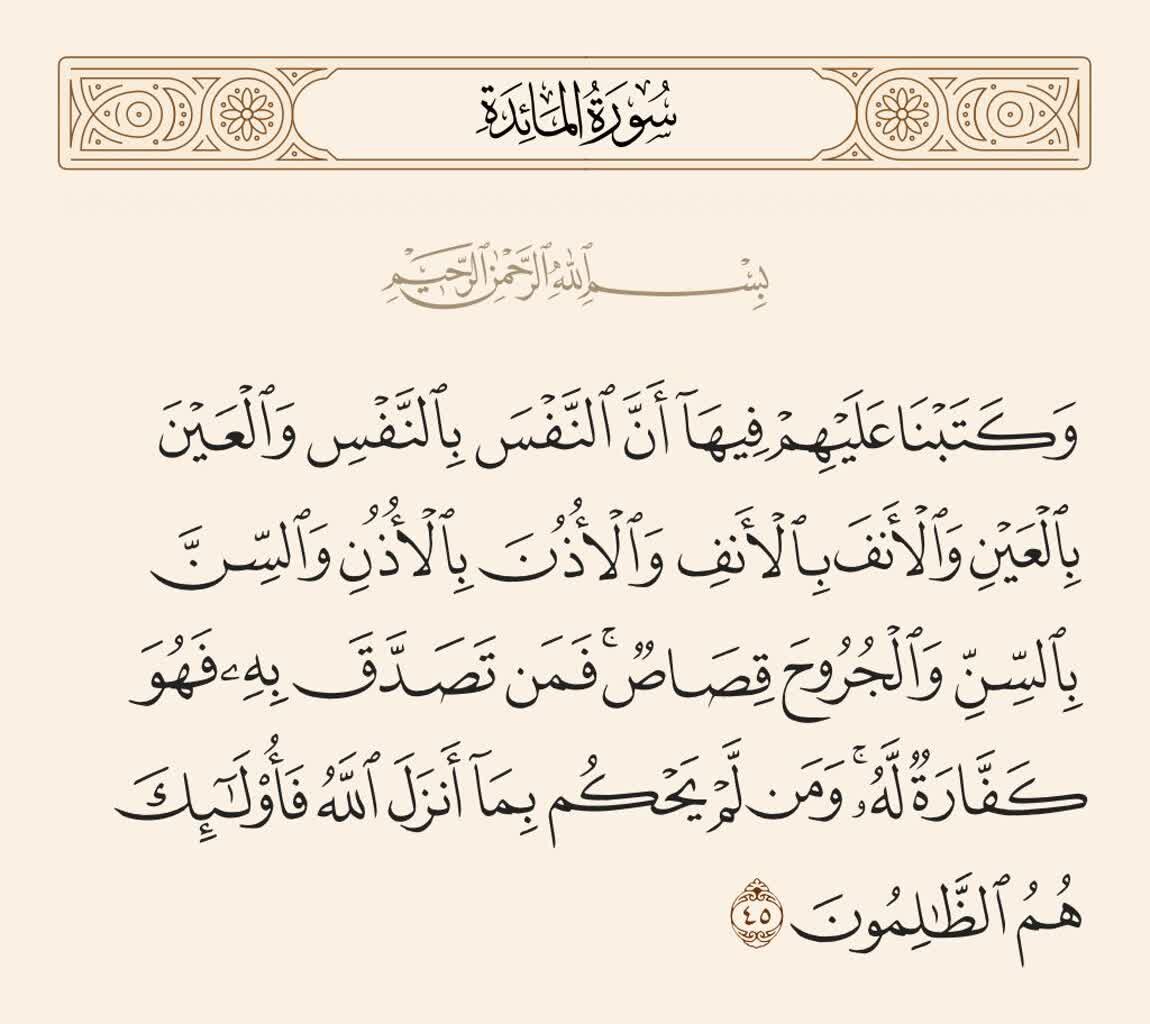 سُورَةُ المَائِدَةِ
بِسْمِ ٱللَّهِ ٱلرَّحْمَٰنِ ٱلرَّحِيمِ
وَكَتَبْنَا عَلَيْهِمْ فِيهَآ أَنَّ ٱلنَّفْسَ بِٱلنَّفْسِ وَٱلْعَيْنَ
بِٱلْعَيْنِ وَٱلْأَنفَ بِٱلْأَنفِ وَٱلْأُذُنَ بِٱلْأُذُنِ وَٱلسِّنَّ
بِٱلسِّنِّ وَٱلْجُرُوحَ قِصَاصٌ ۚ فَمَن تَصَدَّقَ بِهِۦ فَهُوَ
كَفَّارَةٌ لَّهُۥ ۚ وَمَن لَّمْ يَحْكُم بِمَآ أَنزَلَ ٱللَّهُ فَأُو۟لَٰٓئِكَ
هُمُ ٱلظَّٰلِمُونَ ٤٥